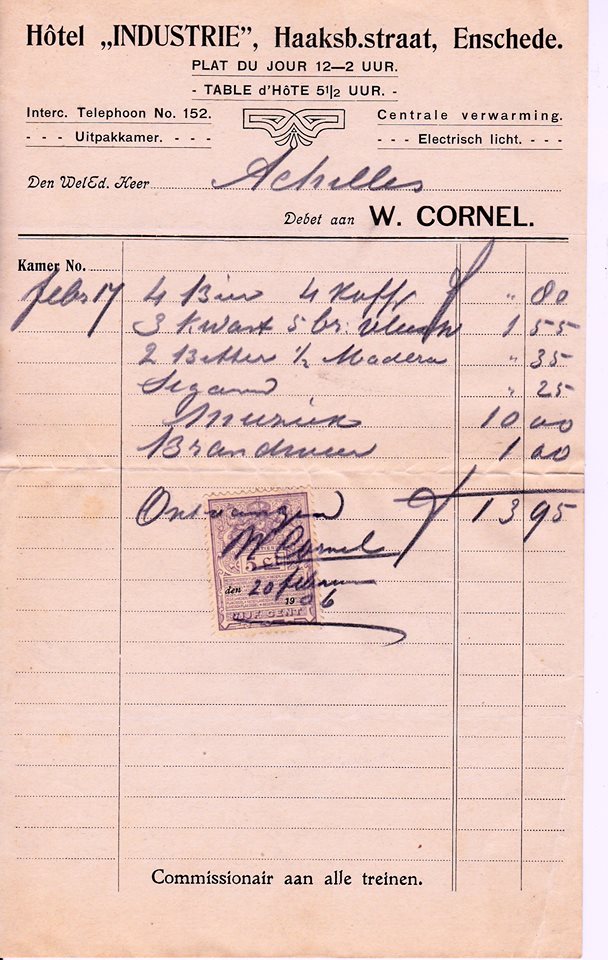 Hôtel „INDUSTRIE”, Haaksb.straat, Enschede.
PLAT DU JOUR 12—2 UUR.
- TABLE d'HôTE 5½ UUR. -
Interc. Telephoon No. 152.
Centrale verwarming.
- - - Uitpakkamer. - - -
- - - Electrisch licht. - - -
Den WelEd. Heer Achilles
Debet aan W. CORNEL.
Kamer No.
febr 17 4 Bier 4 Koff f " 80
3 Kwast 5 br: 1 55
2 Bitter ½ Madera " 35
" 25
Muziek 10 00
Brandweer 1 00
Ontvangen f 13 95
W Cornel
5 c
den 20 februari
1906
VIJF CENT
Commissionair aan alle treinen.